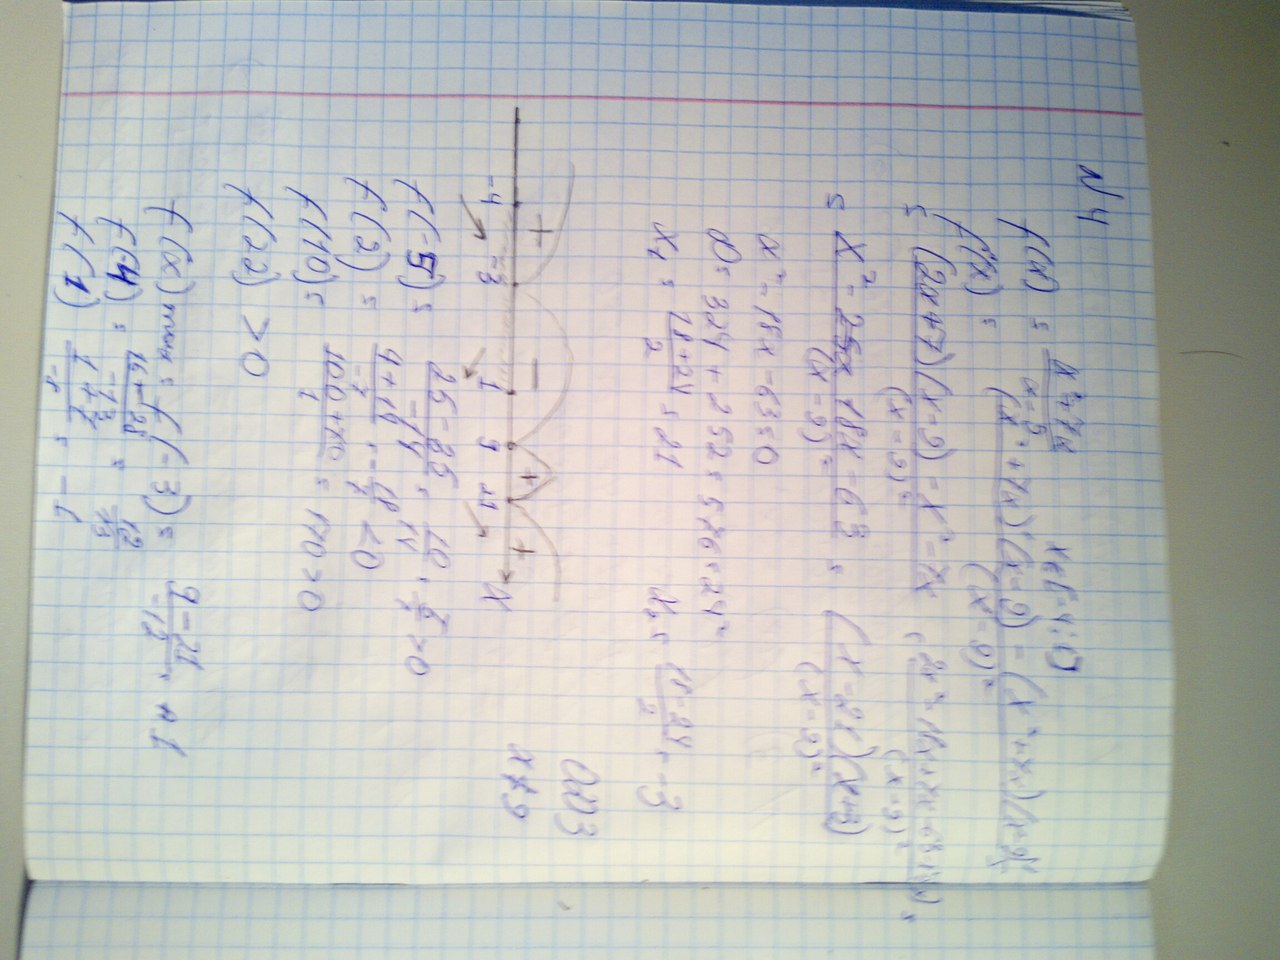 N 4
f(x) = (x²+7x)/(x-9) x∈[-4;1]
f'(x) = ((x²+7x)'(x-9) - (x²+7x)(x-9)')/(x-9)² =
= ((2x+7)(x-9) - x² - 7x)/(x-9)² = (2x²-18x+7x-63-x²-7x)/(x-9)² =
= (x² - 18x - 63)/(x-9)² = ((x-21)(x+3))/(x-9)²
x² - 18x - 63 = 0
D = 324 + 252 = 576 = 24²
x₁ = (18+24)/2 = 21 x₂ = (18-24)/2 = -3
ОДЗ
x≠9
+ - + +
-4 -3 1 9 21 X
f(-5) = (25-35)/-14 = 10/14 = 5/7 > 0
f(2) = (4+14)/-7 = -18/7 < 0
f(10) = (100+70)/1 = 170 > 0
f(22) > 0
f(x) max = f(-3) = (9-21)/-12 = 1
f(-4) = (16-28)/-13 = 12/13
f(1) (1+7)/-8 = -1